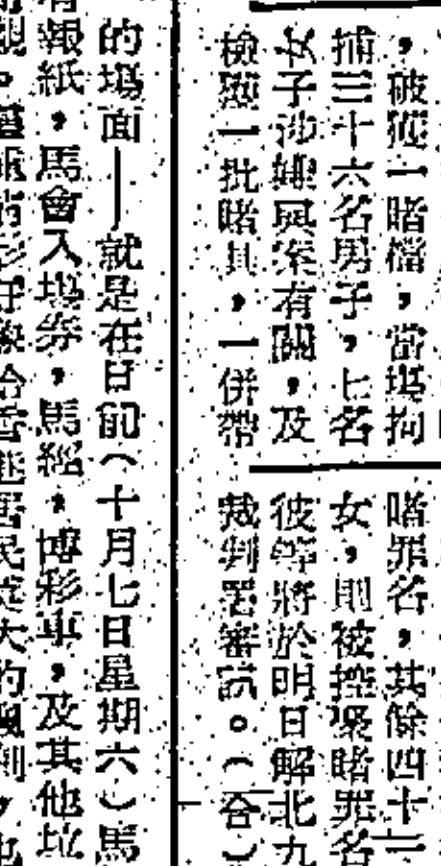 ，破獲一賭檔，當場拘
捕三十六名男子，七名
女子涉嫌與案有關，及
檢獲一批賭具，一併帶
賭罪名，其餘四十二
女，則被控聚賭罪名
彼等將於明日解北九
裁判署審訊。（合）
的場面——就是在日前（十月七日星期六）馬
報紙，馬會入場券，馬經，博彩車，及其他垃
居民
大的諷刺，也